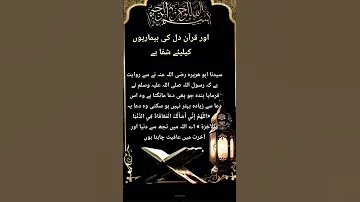 بسم الله الرحمن الرحيم
اور قرآن دل کی بیماریوں
کیلیئے شفا ہے
سیدنا ابو هریره رضی الله عنہ نے سے روایت
ہے کہ رسول اللہ صلی اللہ علیہ وسلم نے
فرمایا بندہ جو بھی دعا مانگتا ہے وہ اس
دعا سے زیادہ بہتر نہیں ہو سکتی وہ دعا یہ
اللَّهُمَّ إِنِّي أَسْأَلُكَ الْمُعَافَاةَ فِي الدُّنْيَا
وَالْآخِرَةِ » اے اللہ میں تجھ سے دنیا اور
آخرت میں عافیت چاہتا ہوں